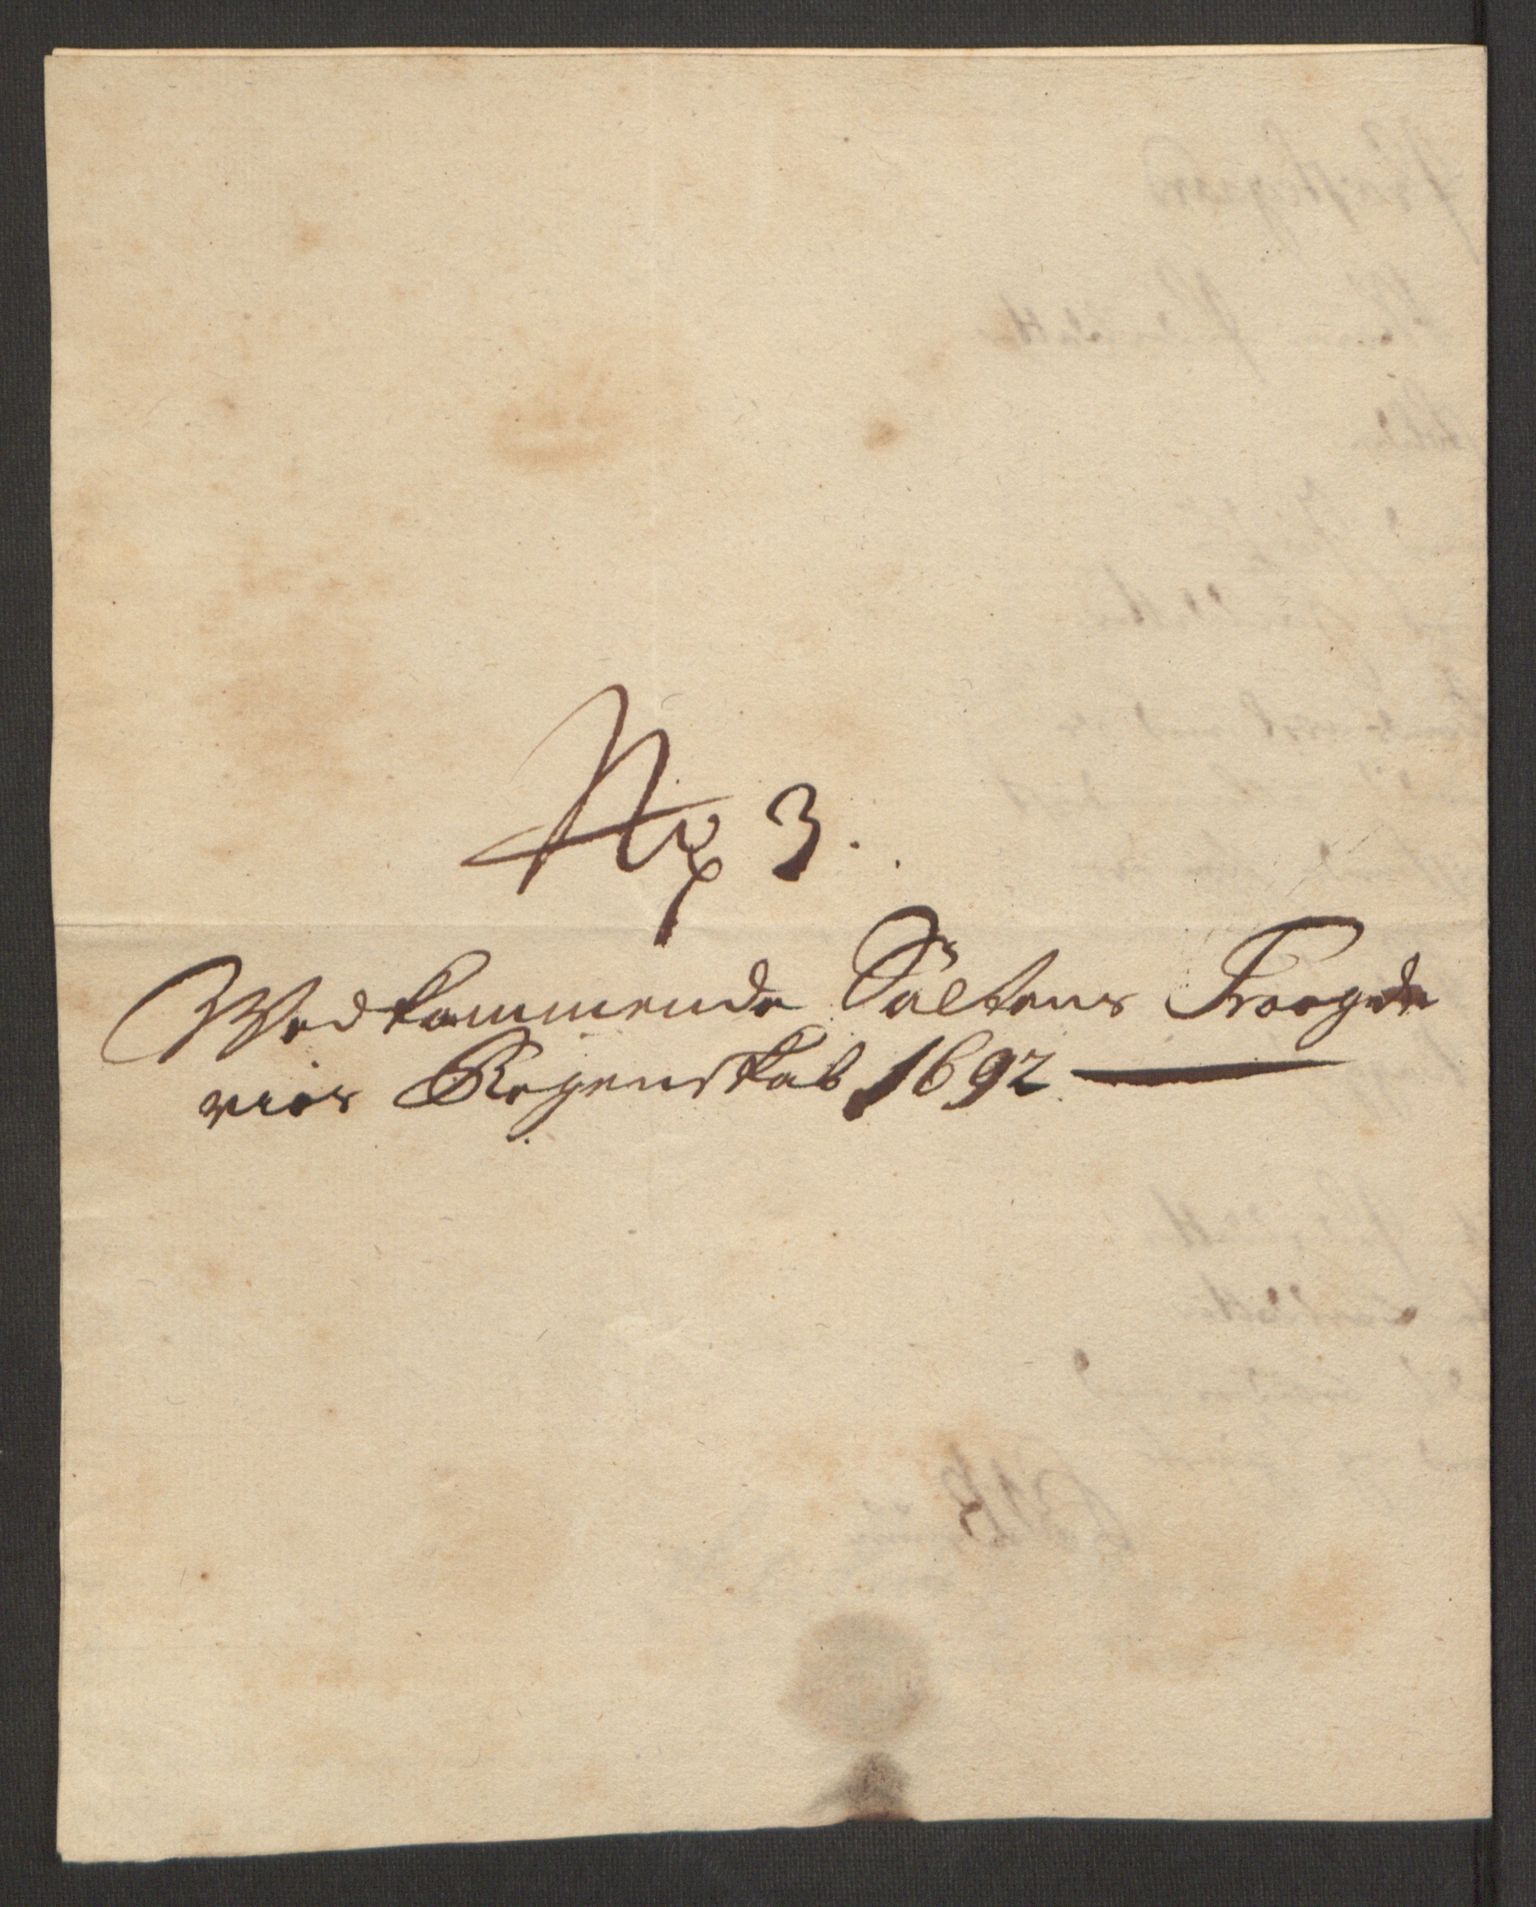 No 3.
Wedkommende Saltens Froegde
ries Regenskab 1692